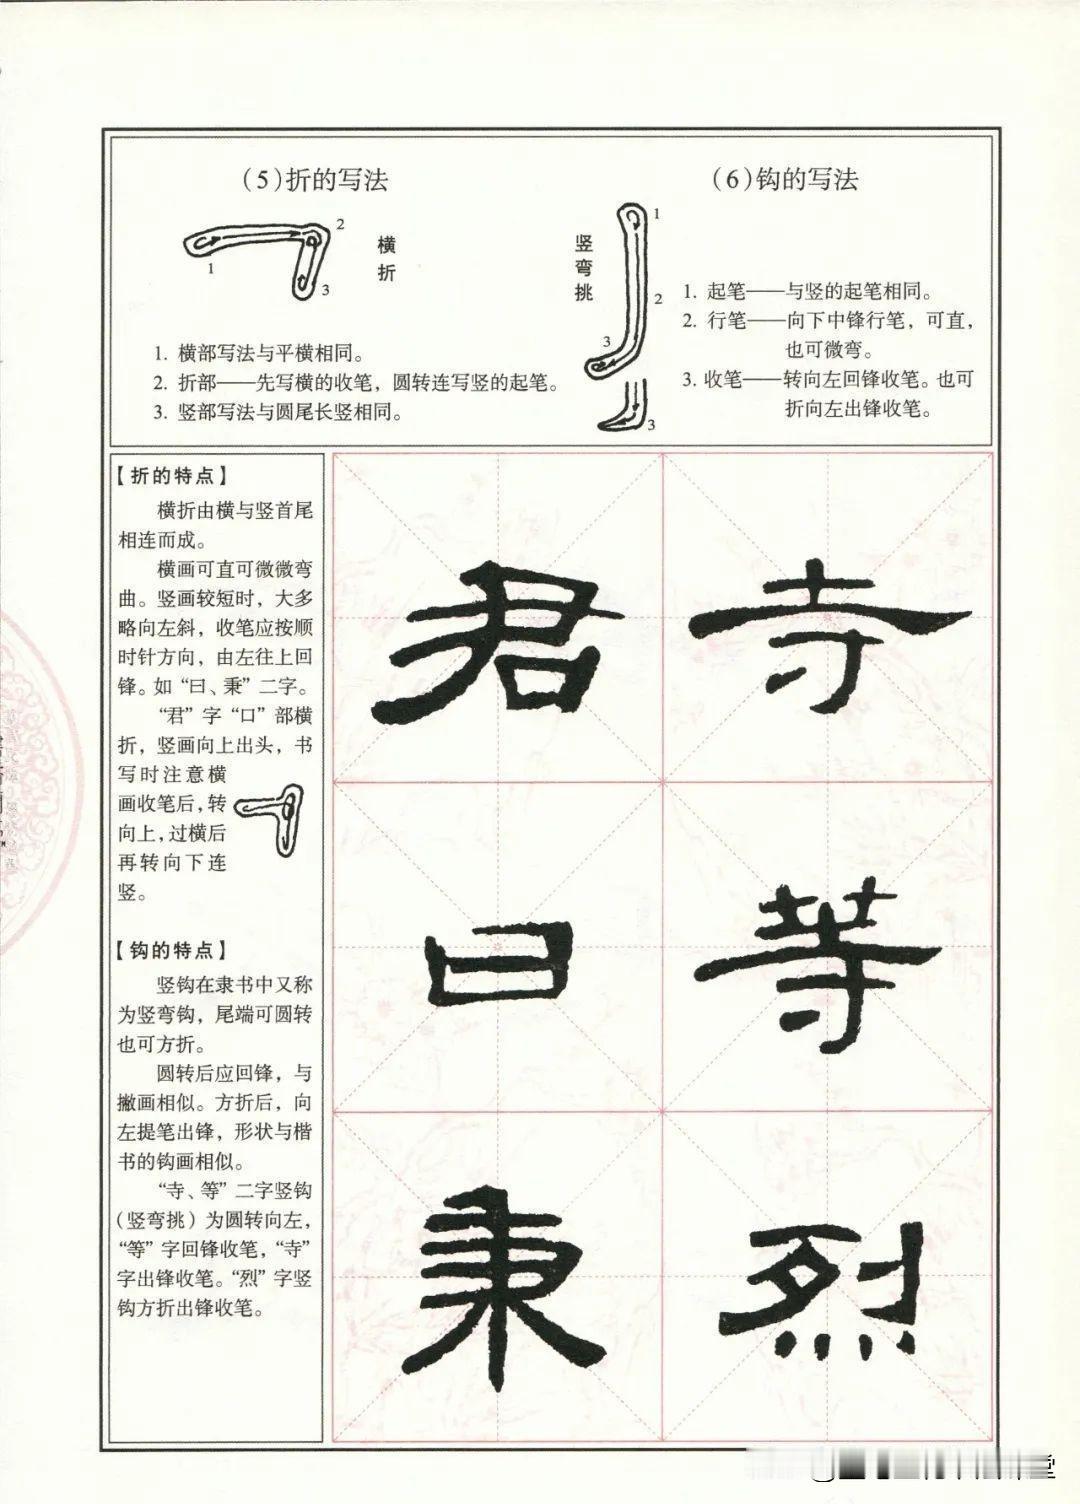 （5）折的写法
1
2
3
横折
1. 横部写法与平横相同。
2. 折部——先写横的收笔，圆转连写竖的起笔。
3. 竖部写法与圆尾长竖相同。
（6）钩的写法
竖弯挑
1
2
3
3
1. 起笔——与竖的起笔相同。
2. 行笔——向下中锋行笔，可直，
也可微弯。
3. 收笔——转向左回锋收笔。也可
折向左出锋收笔。
【折的特点】
横折由横与竖首尾
相连而成。
横画可直可微微弯
曲。竖画较短时，大多
略向左斜，收笔应按顺
时针方向，由左往上回
锋。如“曰、秉”二字。
“君”字“口”部横
折，竖画向上出头，书
写时注意横
画收笔后，转
向上，过横后
再转向下连
竖。
【钩的特点】
竖钩在隶书中又称
为竖弯钩，尾端可圆转
也可方折。
圆转后应回锋，与
撇画相似。方折后，向
左提笔出锋，形状与楷
书的钩画相似。
“寺、等”二字竖钩
（竖弯挑）为圆转向左，
“等”字回锋收笔，“寺”
字出锋收笔。“烈”字竖
钩方折出锋收笔。
君 寺
曰 等
秉 烈